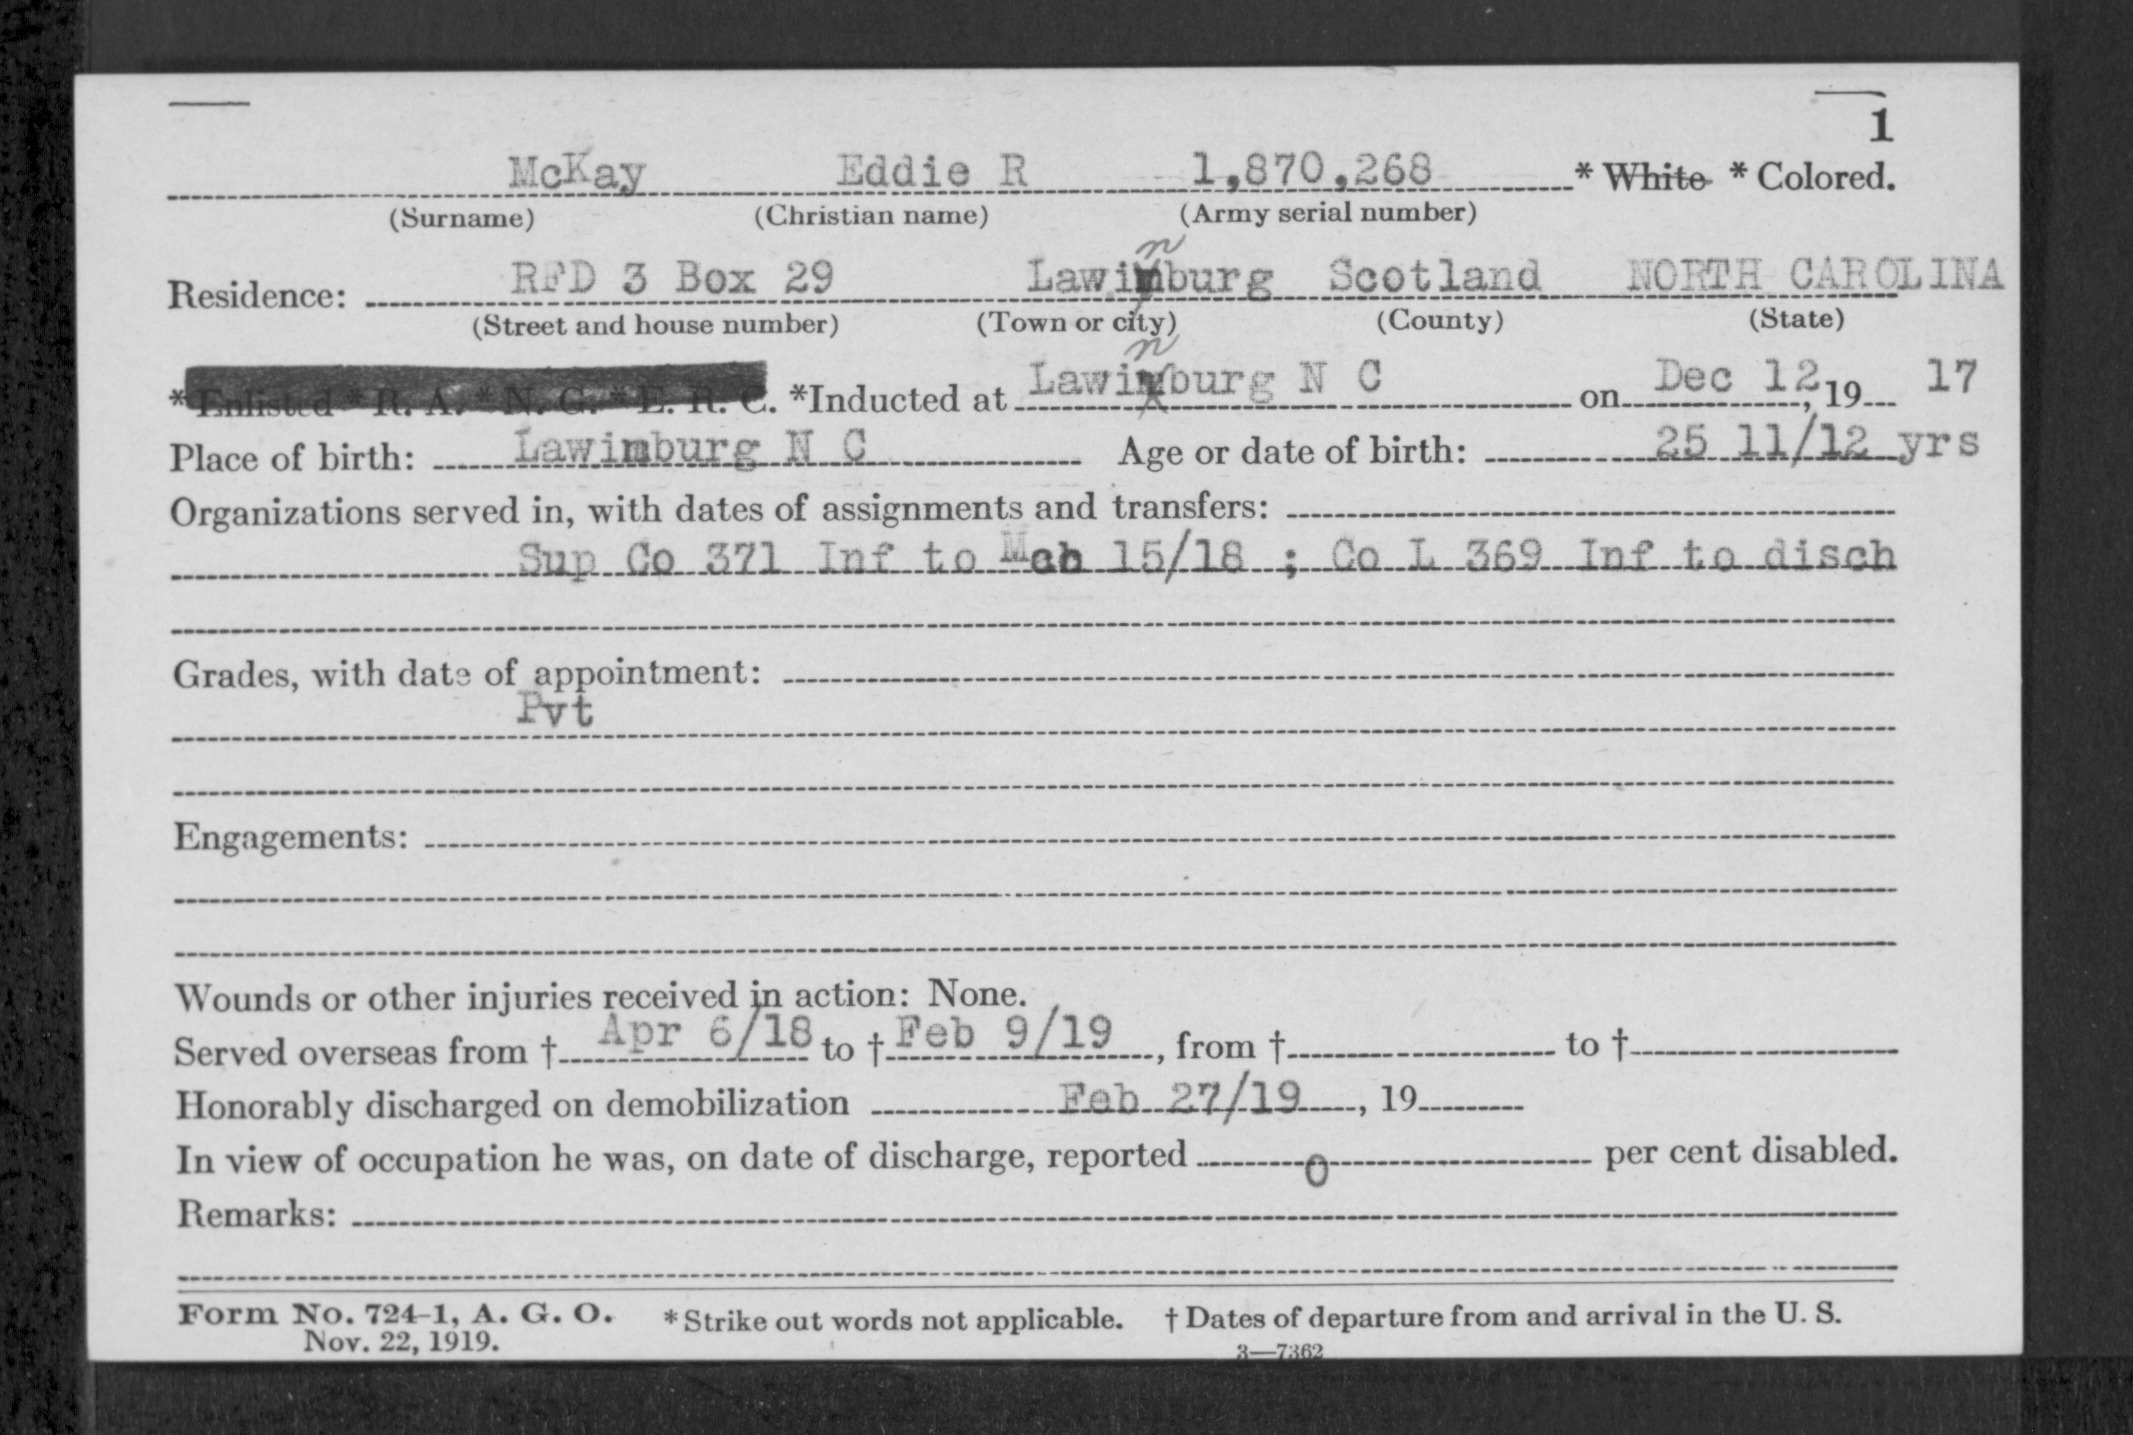 1
McKay Eddie R 1,870,268 * White * Colored.
(Surname) (Christian name) (Army serial number)
n
Residence: RFD 3 Box 29 Lawimburg Scotland NORTH CAROLINA
(Street and house number) (Town or city) (County) (State)
n
* Enlisted * R. A. * N. G. * E. R. C. *Inducted at Lawimburg N C on Dec 12, 19 17
Place of birth: Lawimburg N C Age or date of birth: 25 11/12 yrs
Organizations served in, with dates of assignments and transfers:
Sup Co 371 Inf to Mch 15/18 ; Co L 369 Inf to disch
Grades, with date of appointment:
Pvt
Engagements:
Wounds or other injuries received in action: None.
Served overseas from † Apr 6/18 to † Feb 9/19, from † to †
Honorably discharged on demobilization Feb 27/19, 19
In view of occupation he was, on date of discharge, reported 0 per cent disabled.
Remarks:
Form No. 724-1, A. G. O. * Strike out words not applicable. † Dates of departure from and arrival in the U. S.
Nov. 22, 1919. 3—7362